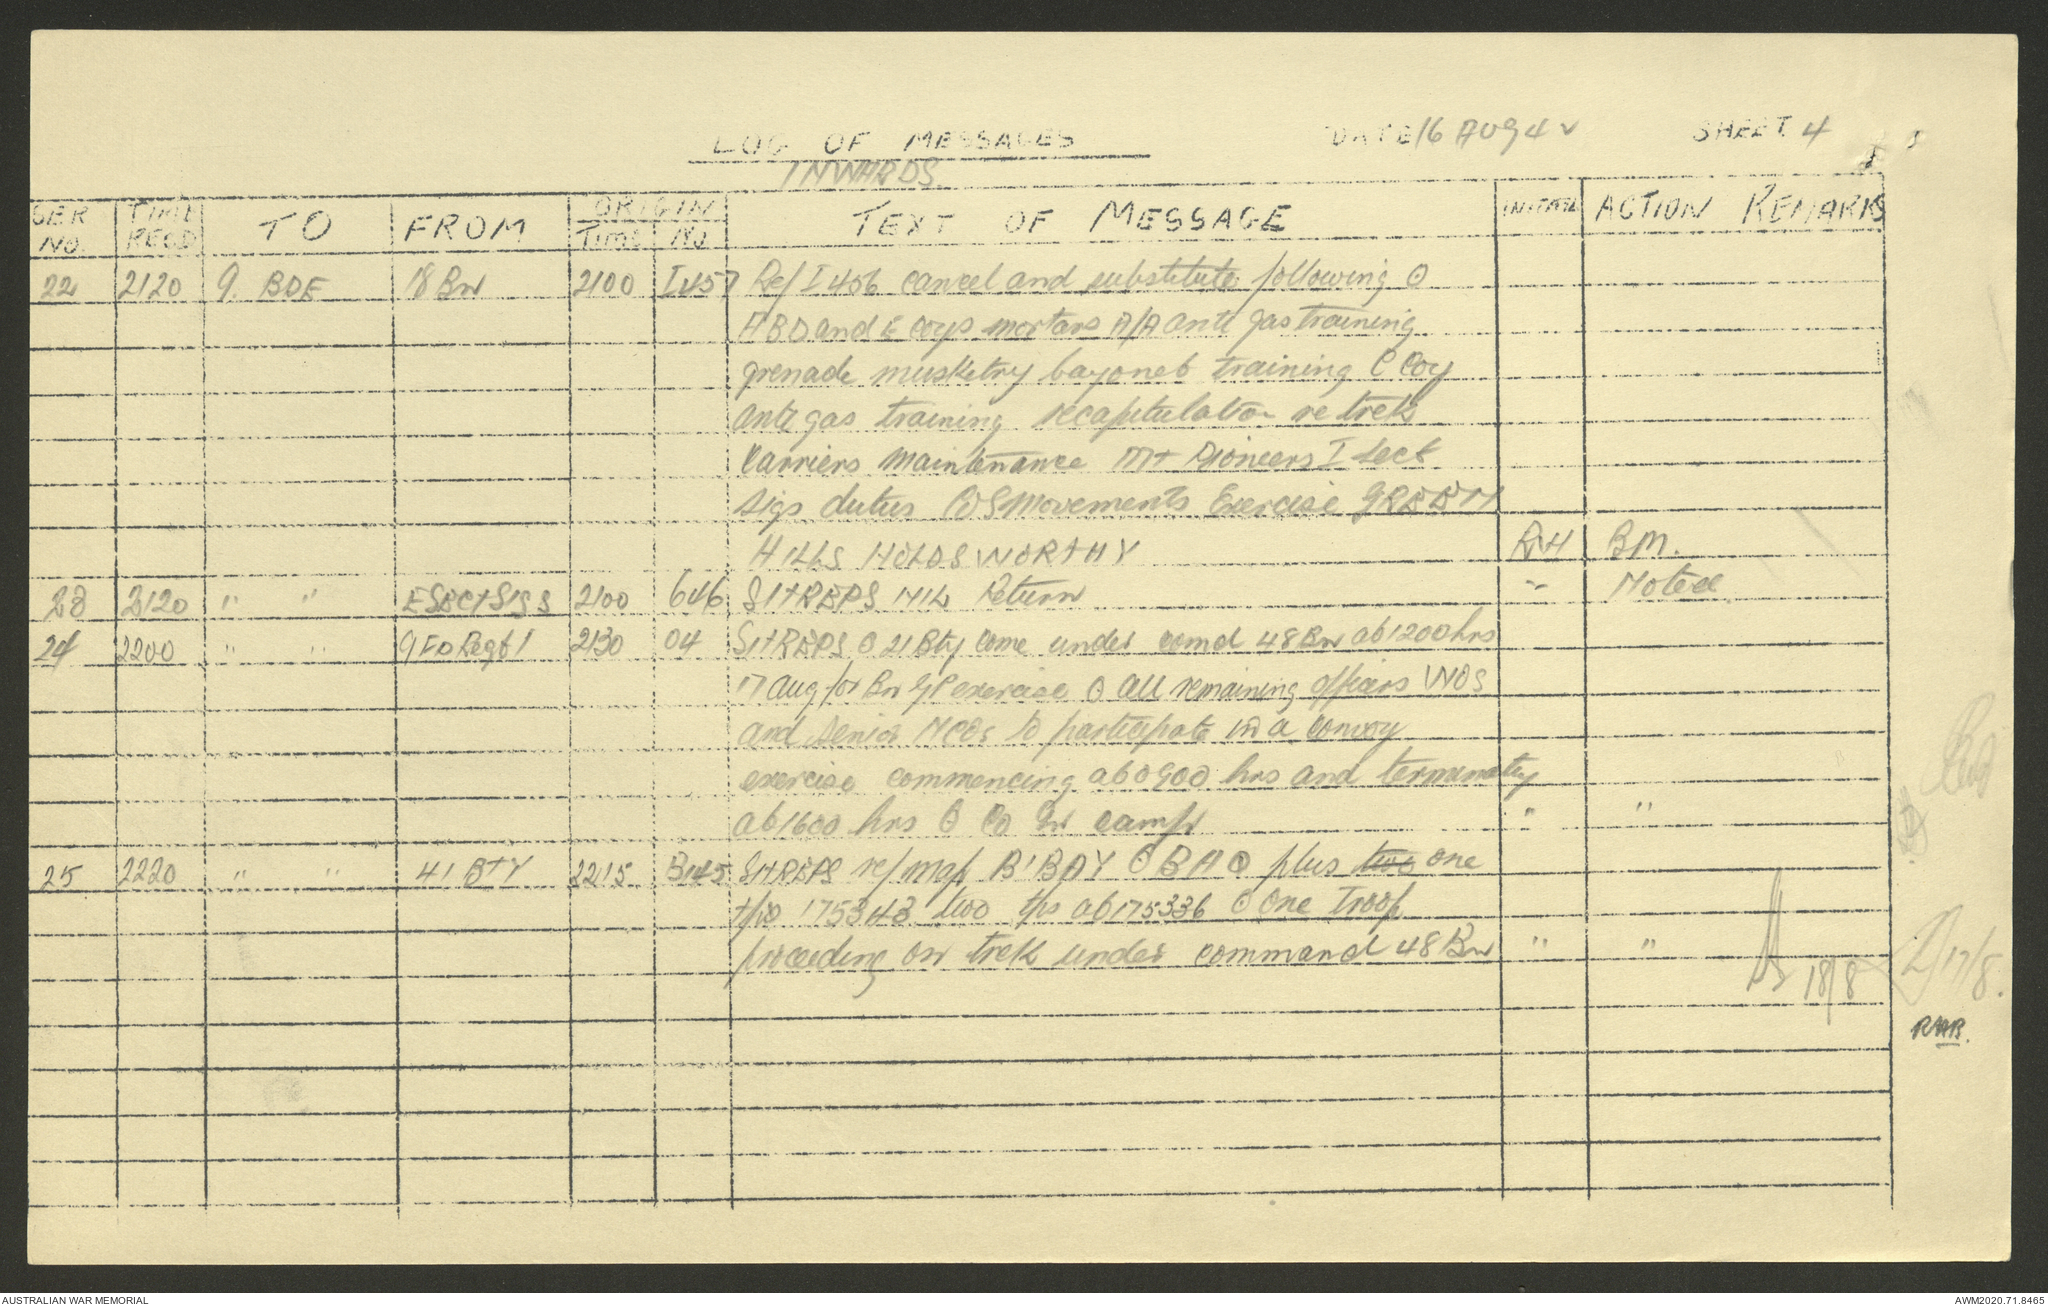 LOG OF MESSAGES DATE 16 AUG 42 SHEET 4
INWARDS
SER NO. TIME RECD TO FROM ORIGIN TIME NO TEXT OF MESSAGE INITIAL ACTION REMARKS
22 2120 9. BDE 18 Bn 2100 I457 Ref I456 cancel and substitute following O
A B D and E Coys mortars A/A anti gas training
grenade musketry bayonet training C Coy
anti gas training recapitulation re trek
Carriers maintenance MT Pioneers I Sect
sigs duties COS movements Exercise GREEN
HILLS HOLDSWORTHY RH BM.
23 2120 " " E SECT SIGS 2100 646 SITREPS NIL Return " Noted
24 2200 " " 9 FD Regt 2130 04 SITREPS O 21 Bty Come under comd 48 Bn at 1200 hrs
17 Aug for Bn GP exercise O All remaining officers WOS
and senior NCOs to participate in a convoy
exercise commencing at 0900 hrs and terminating
at 1600 hrs O Co in camp " "
25 2220 " " 41 BTY 2215 B145 SITREPS ref map B'BAY O BHQ plus two one
175343 two tps at 175336 O One Troop
proceeding on trek under command 48 Bn " "
18/8 17/8.
RAB.
AUSTRALIAN WAR MEMORIAL AWM2020.71.8465